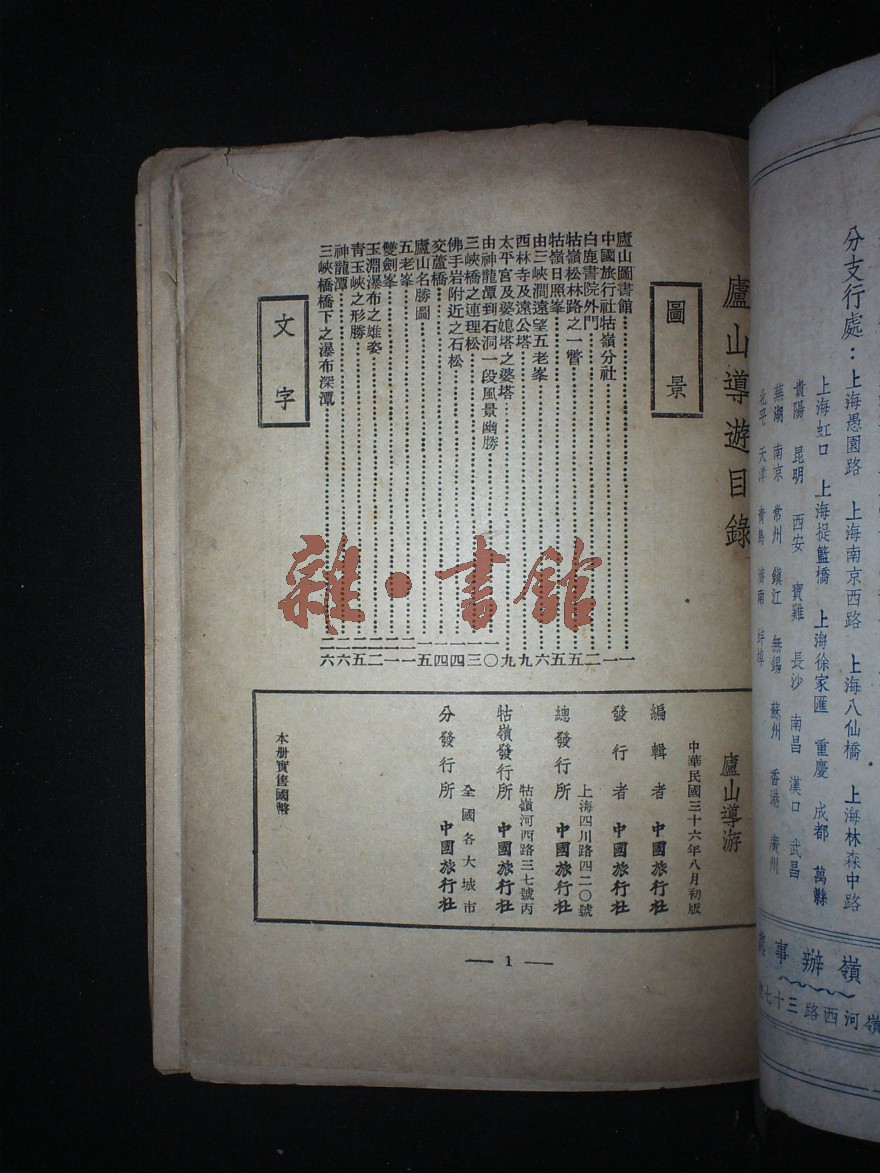 分支行處：上海愚園路 上海南京西路 上海八仙橋 上海林森中路
上海虹口 上海提籃橋 上海徐家匯 重慶 成都 萬縣
貴陽 昆明 西安 寶雞 長沙 南昌 漢口 武昌
蕪湖 南京 常州 鎮江 無錫 蘇州 香港 廣州
北平 天津 青島 濟南 蚌埠
嶺辦事處
嶺河西路三十七號
廬山導遊目錄
圖景
廬山圖書館……一
中國旅行社牯嶺分社……一
白鹿書院外門……二
牯嶺松林路之一瞥……五
牯嶺日照峯……五
由三峽澗遠望五老峯……六
西林寺及遠公塔……九
太平宮及婆媳塔之婆塔……九
由神龍潭到石洞一段風景幽勝……一〇
三峽橋之連理松……一三
佛手岩附近之石松……一四
交蘆橋……一四
廬山名勝圖……一五
五老峯……二一
雙劍峯……二一
玉淵瀑布之雄姿……二二
青玉峽之形勝……二五
神龍潭……二六
三峽橋橋下之瀑布深潭……二六
文字
廬山導游
中華民國三十六年八月初版
編輯者 中國旅行社
發行者 中國旅行社
上海四川路四二〇號
總發行所 中國旅行社
牯嶺河西路三七號丙
牯嶺發行所 中國旅行社
全國各大城市
分發行所 中國旅行社
本册實售國幣
— 1 —
雜·書館